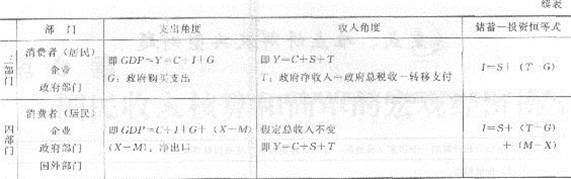 续表
部 门 支出角度 收入角度 储蓄一投资恒等式
三部门
消费者（居民）
企业
政府部门
即GDP=Y=C+I+G
G：政府购买支出
即Y=C+S+T
T：政府净收入=政府总税收-转移支付
I=S+(T-G)
四部门
消费者（居民）
企业
政府部门
国外部门
即GDP=C+I+G+(X-M)
(X-M)，净出口
假定总收入不变
即Y=C+S+T
I=S+(T-G)
+(M-X)